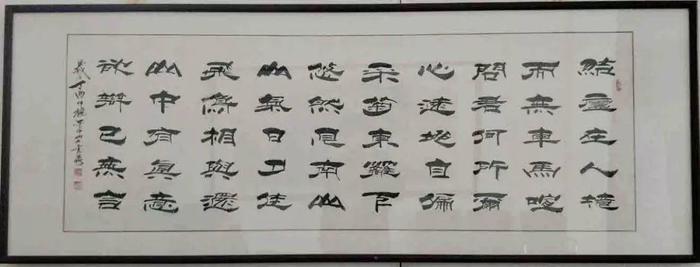 結廬在人境
而無車馬喧
問君何所爾
心遠地自偏
采菊東籬下
悠然見南山
山氣日夕佳
飛鳥相與還
山中有真意
欲辯已無言
丁酉